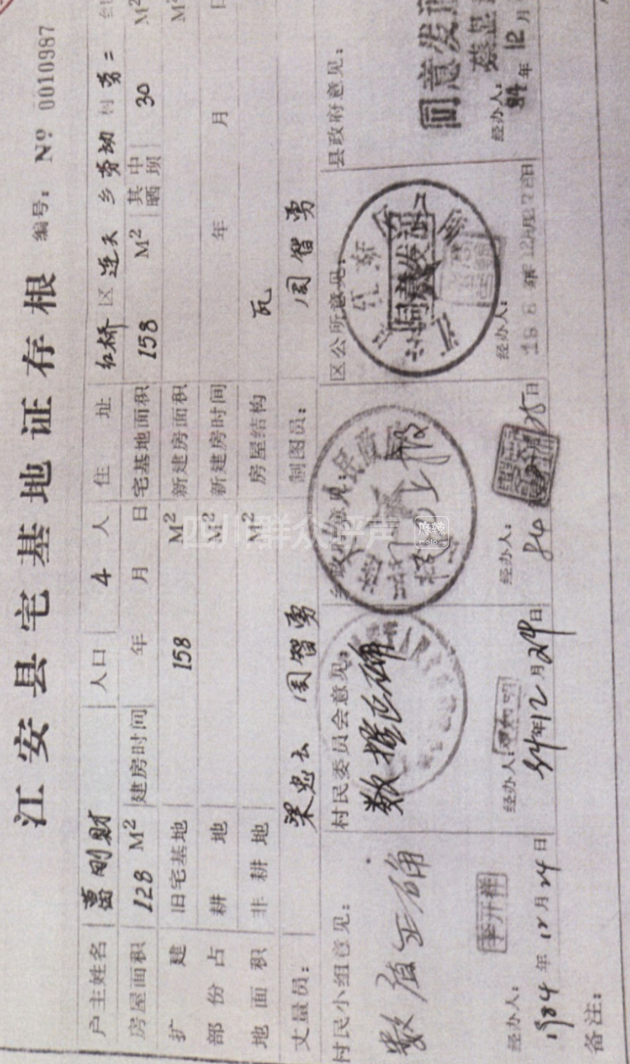 江安县宅基地证存根
编号：Nº 0010987
户主姓名 葛刚财 人口 4 人 住址 红桥 区 连天 乡 劳动 村 劳二
房屋面积 128 M² 建房时间 年 月 日 宅基地面积 158 M² 其中晒坝 30 M²
扩建部份占地面积 旧宅基地 158 M² 新建房面积 M²
耕地 M² 新建房时间 年 月 日
非耕地 M² 房屋结构 瓦
丈量员： 梁忠云 周智勇 制图员： 周智勇
村民小组意见：
数据正确
经办人： 李开祥
1984 年 12 月 24 日
村民委员会意见：
数据正确
经办人：
84年12月24日
乡政府意见：
上报
经办人：
84
日
区公所意见：
同意发证
经办人：
县政府意见：
同意发证
经办人：
84 年 12 月
备注：
四川群众资产